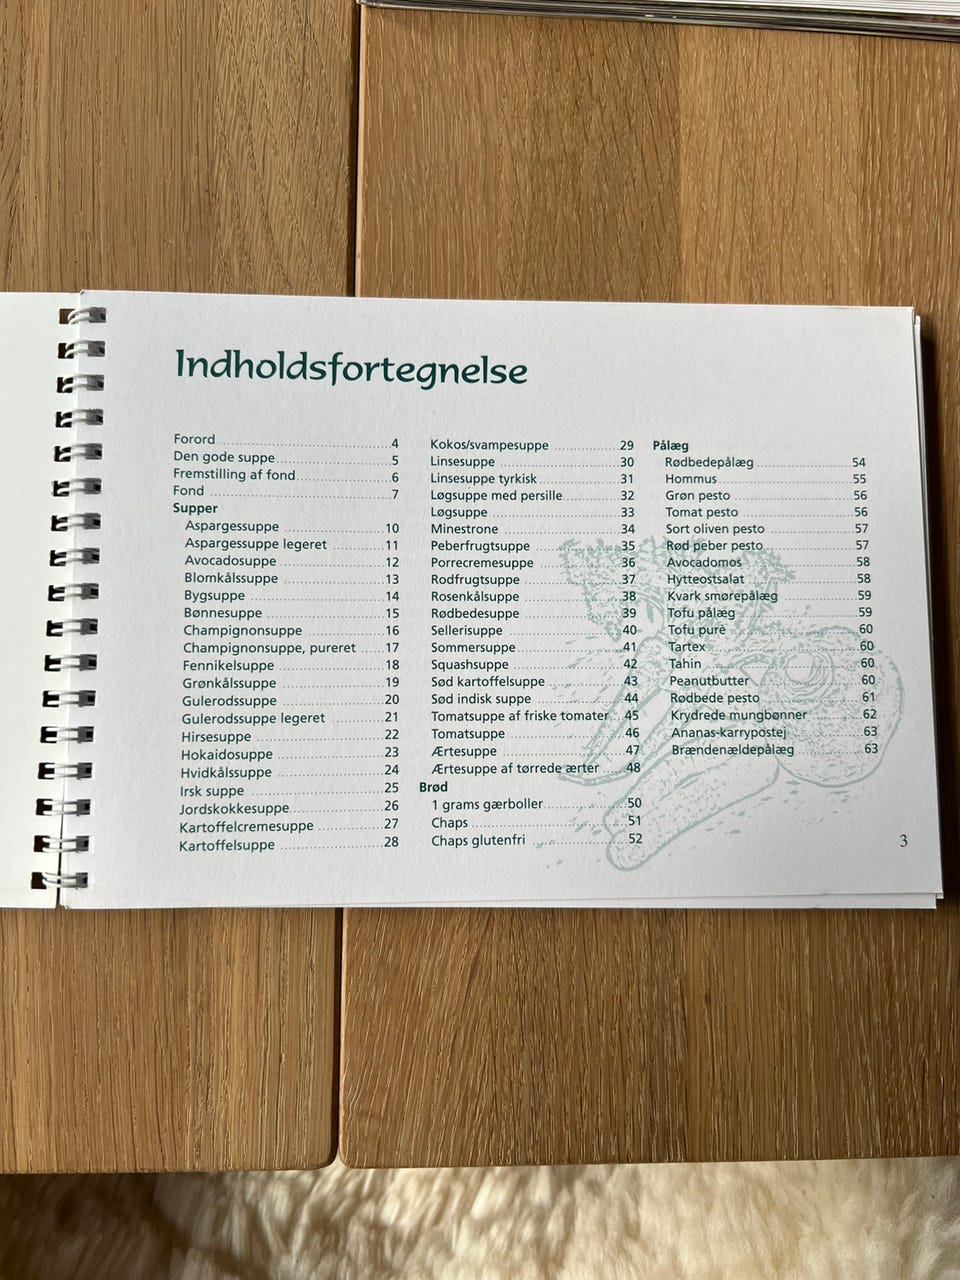 Indholdsfortegnelse
Forord 4
Den gode suppe 5
Fremstilling af fond 6
Fond 7
Supper
Aspargessuppe 10
Aspargessuppe legeret 11
Avocadosuppe 12
Blomkålssuppe 13
Bygsuppe 14
Bønnesuppe 15
Champignonsuppe 16
Champignonsuppe, pureret 17
Fennikelsuppe 18
Grønkålssuppe 19
Gulerodssuppe 20
Gulerodssuppe legeret 21
Hirsesuppe 22
Hokaidosuppe 23
Hvidkålssuppe 24
Irsk suppe 25
Jordskokkesuppe 26
Kartoffelcremesuppe 27
Kartoffelsuppe 28
Kokos/svampesuppe 29
Linsesuppe 30
Linsesuppe tyrkisk 31
Løgsuppe med persille 32
Løgsuppe 33
Minestrone 34
Peberfrugtsuppe 35
Porrecremesuppe 36
Rodfrugtsuppe 37
Rosenkålsuppe 38
Rødbedesuppe 39
Sellerisuppe 40
Sommersuppe 41
Squashsuppe 42
Sød kartoffelsuppe 43
Sød indisk suppe 44
Tomatsuppe af friske tomater 45
Tomatsuppe 46
Ærtesuppe 47
Ærtesuppe af tørrede ærter 48
Brød
1 grams gærboller 50
Chaps 51
Chaps glutenfri 52
Pålæg
Rødbedepålæg 54
Hommus 55
Grøn pesto 56
Tomat pesto 56
Sort oliven pesto 57
Rød peber pesto 57
Avocadomos 58
Hytteostsalat 58
Kvark smørepålæg 59
Tofu pålæg 59
Tofu purè 60
Tartex 60
Tahin 60
Peanutbutter 60
Rødbede pesto 61
Krydrede mungbønner 62
Ananas-karrypostej 63
Brændenældepålæg 63
3